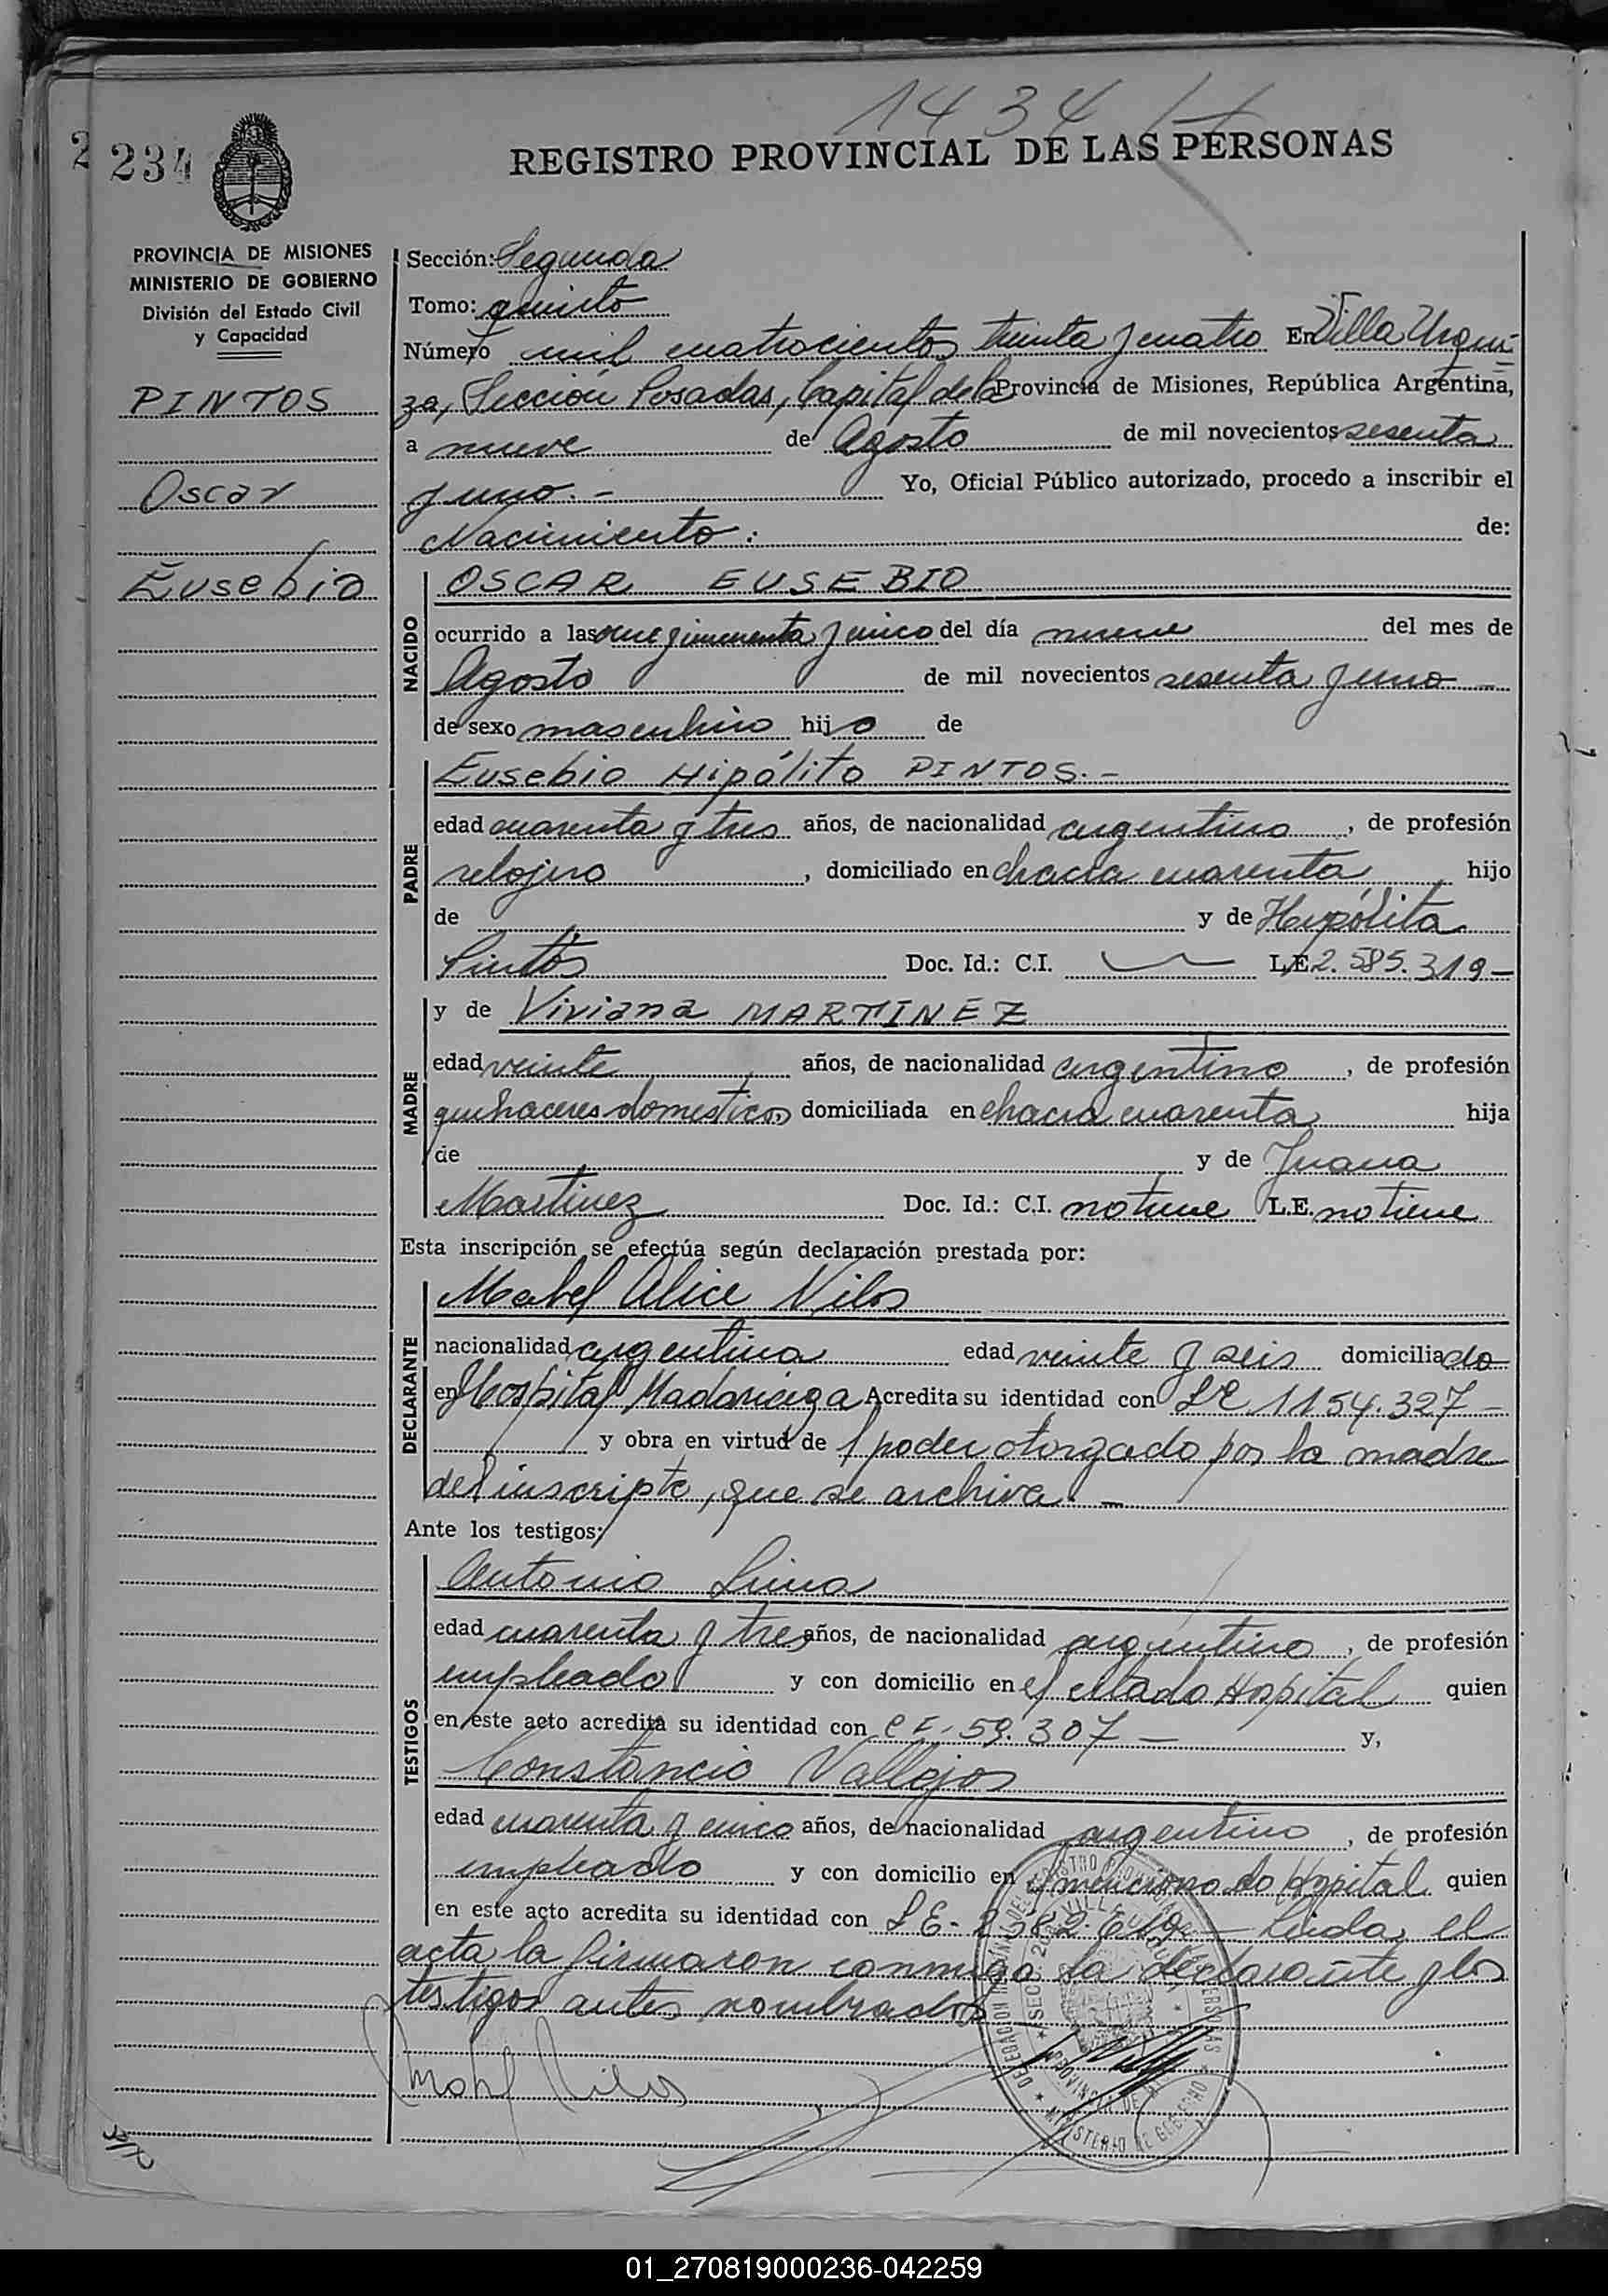 1434
2
234
REGISTRO PROVINCIAL DE LAS PERSONAS
PROVINCIA DE MISIONES
MINISTERIO DE GOBIERNO
División del Estado Civil
y Capacidad
PINTOS
Oscar
Eusebio
Sección: Segunda
Tomo: quinto
Número mil cuatrocientos treinta y cuatro En Villa Urqui-
za, Sección Posadas, Capital de la Provincia de Misiones, República Argentina,
a nueve de Agosto de mil novecientos sesenta
y uno.- Yo, Oficial Público autorizado, procedo a inscribir el
Nacimiento: de:
NACIDO
OSCAR EUSEBIO
ocurrido a las once y cincuenta y cinco del día nueve del mes de
Agosto de mil novecientos sesenta y uno
de sexo masculino hijo de
PADRE
Eusebio Hipólito PINTOS.-
edad cuarenta y tres años, de nacionalidad argentino, de profesión
relojero, domiciliado en chacra cuarenta hijo
de y de Hipólita
Pintos Doc. Id.: C.I. L.E. 2.585.319-
MADRE
y de Viviana MARTINEZ
edad veinte años, de nacionalidad argentina, de profesión
quehaceres domesticos domiciliada en chacra cuarenta hija
de y de Juana
Martinez Doc. Id.: C.I. no tiene L.E. no tiene
Esta inscripción se efectúa según declaración prestada por:
DECLARANTE
Mabel Alice Vilos
nacionalidad argentina edad veinte y seis domiciliado
en Hospital Madariaga Acredita su identidad con LC 1154.327-
y obra en virtud de l poder otorgado por la madre
del inscripto, que se archiva.-
Ante los testigos;
TESTIGOS
Antonio Lima
edad cuarenta y tres años, de nacionalidad argentino, de profesión
empleado y con domicilio en el citado Hospital quien
en este acto acredita su identidad con CI-59.307- y,
Constancio Vallejos
edad cuarenta y cinco años, de nacionalidad argentino, de profesión
empleado y con domicilio en el mencionado Hospital quien
en este acto acredita su identidad con LE- Leida, el
acta la firmaron conmigo la declarante y los
testigos antes nombrados
Mabel Vilos
01_270819000236-042259